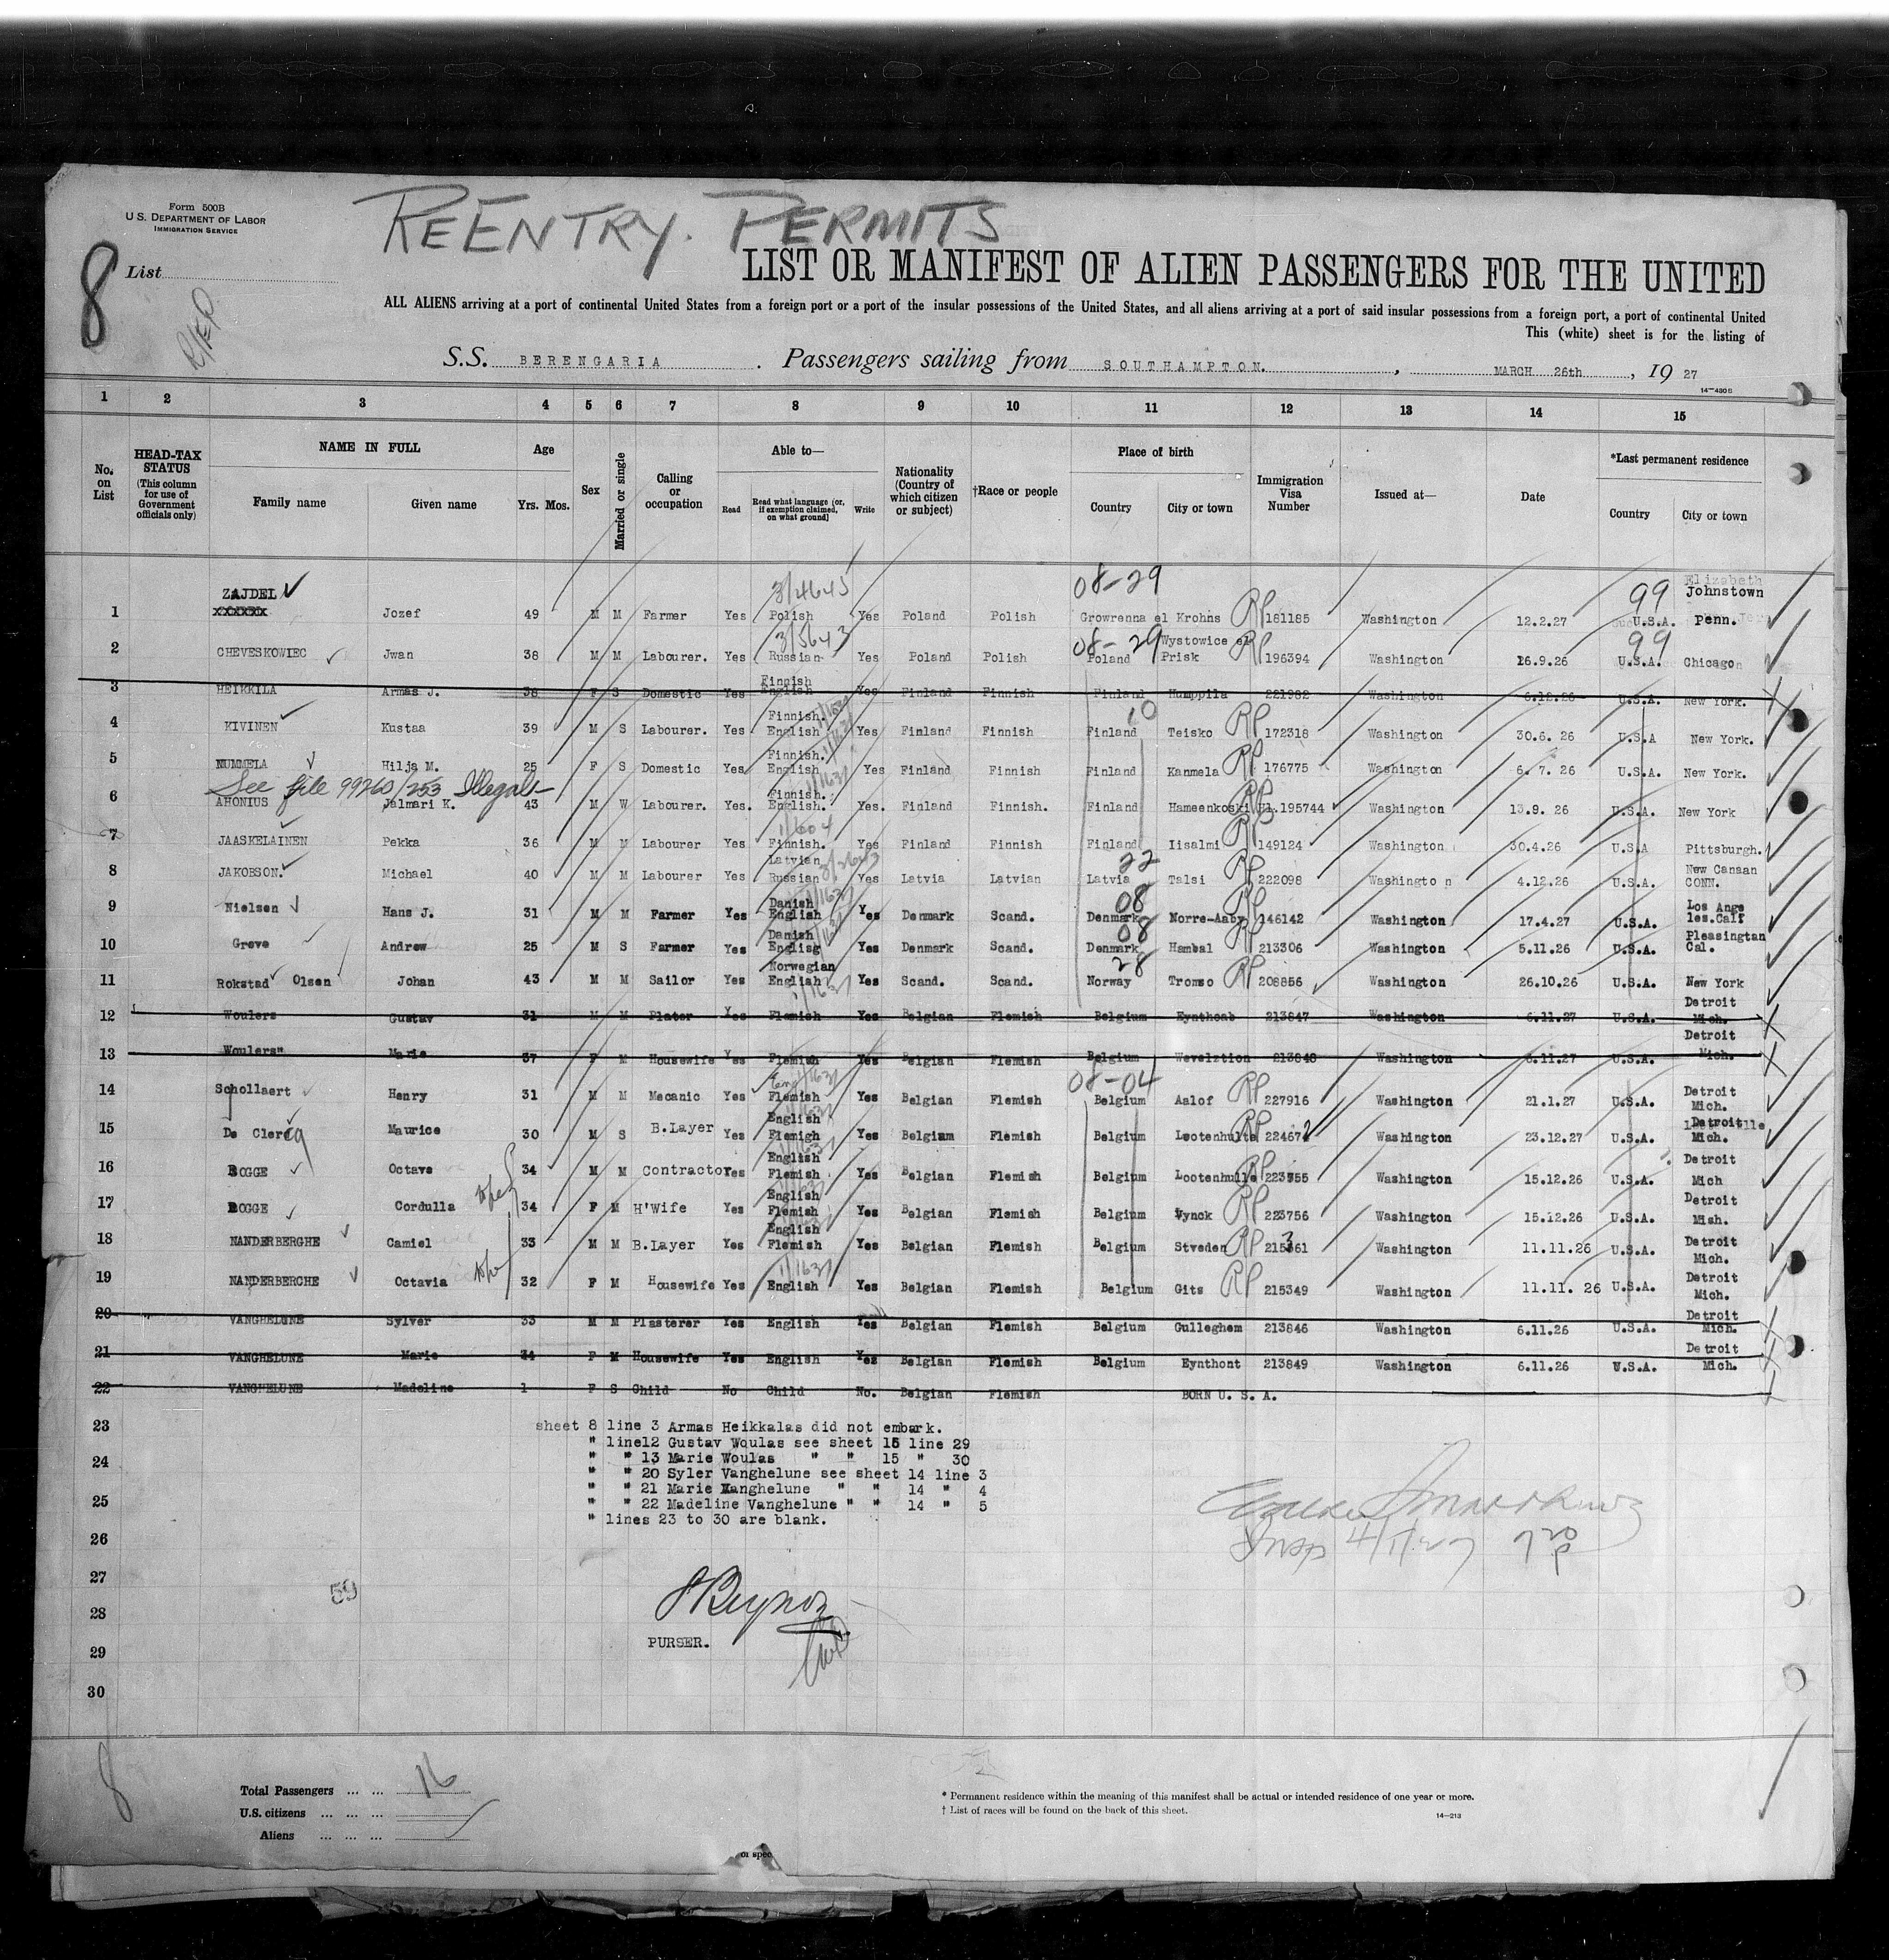 Form 500B
U.S. DEPARTMENT OF LABOR
IMMIGRATION SERVICE
REENTRY. PERMITS
8
List
LIST OR MANIFEST OF ALIEN PASSENGERS FOR THE UNITED
ALL ALIENS arriving at a port of continental United States from a foreign port or a port of the insular possessions of the United States, and all aliens arriving at a port of said insular possessions from a foreign port, a port of continental United
This (white) sheet is for the listing of
S.S. BERENGARIA. Passengers sailing from SOUTHAMPTON., MARCH 26th, 19 27
14-430 B
1 2 3 4 5 6 7 8 9 10 11 12 13 14 15
No. on List
HEAD-TAX STATUS (This column for use of Government officials only)
NAME IN FULL Family name Given name
Age Yrs. Mos.
Sex
Married or single
Calling or occupation
Able to— Read Read what language [or, if exemption claimed, on what ground] Write
Nationality (Country of which citizen or subject)
†Race or people
Place of birth Country City or town
Immigration Visa Number
Issued at—
Date
*Last permanent residence Country City or town
3/4645 08-29 99
1 ZAJDEL xxxxxx Jozef 49 M M Farmer Yes Polish Yes Poland Polish Growrenna el Krohns RP 181185 Washington 12.2.27 U.S.A. Johnstown Penn.
3/5643 08-29 99
2 CHEVESKOWIEC Jwan 38 M M Labourer. Yes Russian Yes Poland Polish Poland Wystowice el Prisk RP 196394 Washington 26.9.26 U.S.A. Chicago
3 HEIKKILA Armas J. 38 F S Domestic Yes Finnish English Yes Finland Finnish Finland Humppila 221982 Washington 6.12.26 U.S.A. New York.
4 KIVINEN Kustaa 39 M S Labourer. Yes Finnish. English Yes Finland Finnish Finland Teisko RP 172318 Washington 30.6. 26 U.S.A New York.
5 NUMMELA Hilja M. 25 F S Domestic Yes Finnish. English Yes Finland Finnish Finland Kanmela RP 176775 Washington 6. 7. 26 U.S.A. New York.
See file 99260/253 Illegals
6 AHONIUS Jalmari K. 43 M W Labourer. Yes. Finnish. English. Yes. Finland Finnish. Finland Hameenkoski RP 195744 Washington 13.9. 26 U.S.A. New York
1/604
7 JAASKELAINEN Pekka 36 M M Labourer Yes Finnish. Yes Finland Finnish Finland Iisalmi RP 149124 Washington 30.4.26 U.S.A Pittsburgh.
22
8 JAKOBSON. Michael 40 M M Labourer Yes Latvian Russian Yes Latvia Latvian Latvia Talsi RP 222098 Washington 4.12.26 U.S.A. New Canaan CONN.
08
9 Nielsen Hans J. 31 M M Farmer Yes Danish English Yes Denmark Scand. Denmark Norre-Aaby RP 146142 Washington 17.4.27 U.S.A. Los Ange les.Calf
08
10 Greve Andrew 25 M S Farmer Yes Danish Englisg Yes Denmark Scand. Denmark Hambal RP 213306 Washington 5.11.26 U.S.A. Pleasingtan Cal.
28
11 Rokstad Olsen Johan 43 M M Sailor Yes Norwegian English Yes Scand. Scand. Norway Tromso RP 208856 Washington 26.10.26 U.S.A. New York
12 Woulers Gustav 31 M M Plater Yes Flemish Yes Belgian Flemish Belgium Eynthoab 213847 Washington 6.11.27 U.S.A. Detroit Mich.
13 Woulers" Marie 37 F M Housewife Yes Flemish Yes Belgian Flemish Belgium Wevelztion 213848 Washington 6.11.27 U.S.A. Detroit Mich.
08-04
14 Schollaert Henry 31 M M Mecanic Yes Eng Flemish Yes Belgian Flemish Belgium Aalof RP 227916 Washington 21.1.27 U.S.A. Detroit Mich.
15 De Clercq Maurice 30 M S B.Layer Yes English Flemigh Yes Belgian Flemish Belgium Lootenhulte RP 224672 Washington 23.12.27 U.S.A. Detroit Mich.
16 ROGGE Octave 34 M M Contractor Yes English Flemish Yes Belgian Flemish Belgium Lootenhulle RP 223755 Washington 15.12.26 U.S.A. Detroit Mich
17 ROGGE Cordulla 34 F M H'Wife Yes English Flemish Yes Belgian Flemish Belgium Vynck RP 223756 Washington 15.12.26 U.S.A. Detroit Mish.
18 NANDERBERGHE Camiel 33 M M B.Layer Yes English Flemish Yes Belgian Flemish Belgium Stveden RP 215361 Washington 11.11.26 U.S.A. Detroit Mich.
19 NANDERBERCHE Octavia 32 F M Housewife Yes English Yes Belgian Flemish Belgium Gits RP 215349 Washington 11.11. 26 U.S.A. Detroit Mich.
20 VANGHELUNE Sylver 33 M M Plasterer Yes English Yes Belgian Flemish Belgium Gulleghem 213846 Washington 6.11.26 U.S.A. Detroit Mich.
21 VANGHELUNE Marie 34 F M Housewife Yes English Yes Belgian Flemish Belgium Eynthont 213849 Washington 6.11.26 U.S.A. Detroit Mich.
22 VANGHELUNE Madeline 1 F S Child No Child No. Belgian Flemish BORN U. S. A.
23 sheet 8 line 3 Armas Heikkalas did not embark.
" line12 Gustav Woulas see sheet 15 line 29
24 " " 13 Marie Woulas " " 15 " 30
" " 20 Syler Vanghelune see sheet 14 line 3
" " 21 Marie Vanghelune " " 14 " 4
25 " " 22 Madeline Vanghelune " " 14 " 5
" lines 23 to 30 are blank.
26
Insp 4/1/27 720 P
27
59
28
PURSER.
29
30
8
Total Passengers ... ... 16
U.S. citizens ... ... ...
Aliens ... ... ...
* Permanent residence within the meaning of this manifest shall be actual or intended residence of one year or more.
† List of races will be found on the back of this sheet.
14-213
or spec